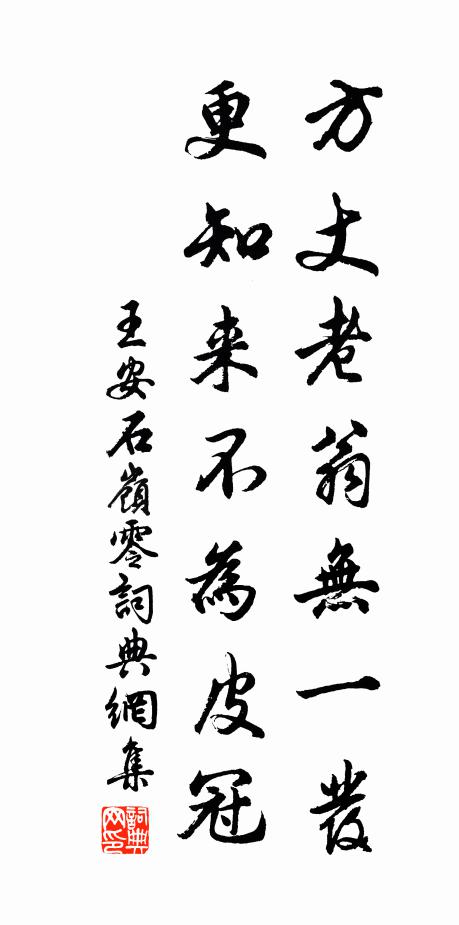 方丈老翁無一發
更知来不為皮冠
王安石嶺零詞典網集
詞典网印